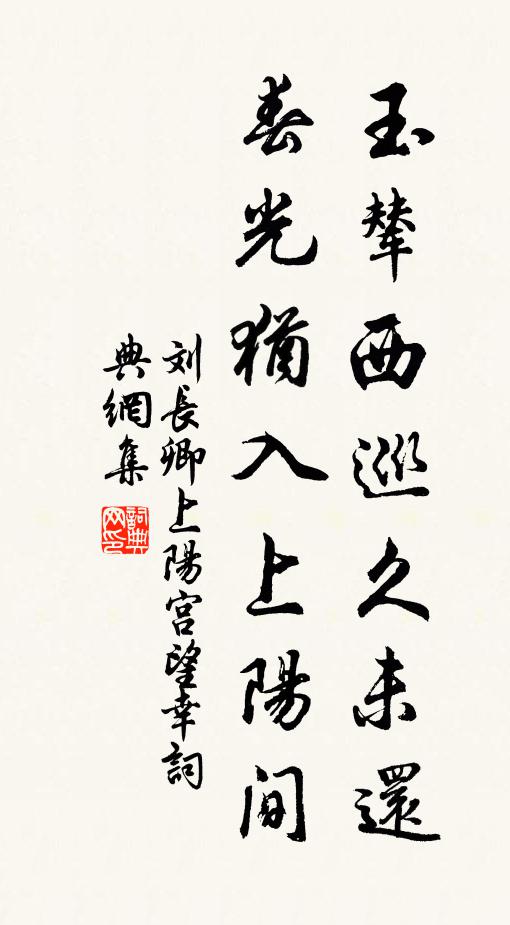 玉輦西巡久未還
春光猶入上陽间
刘長卿上陽宫望幸詞
典網集
詞典网印